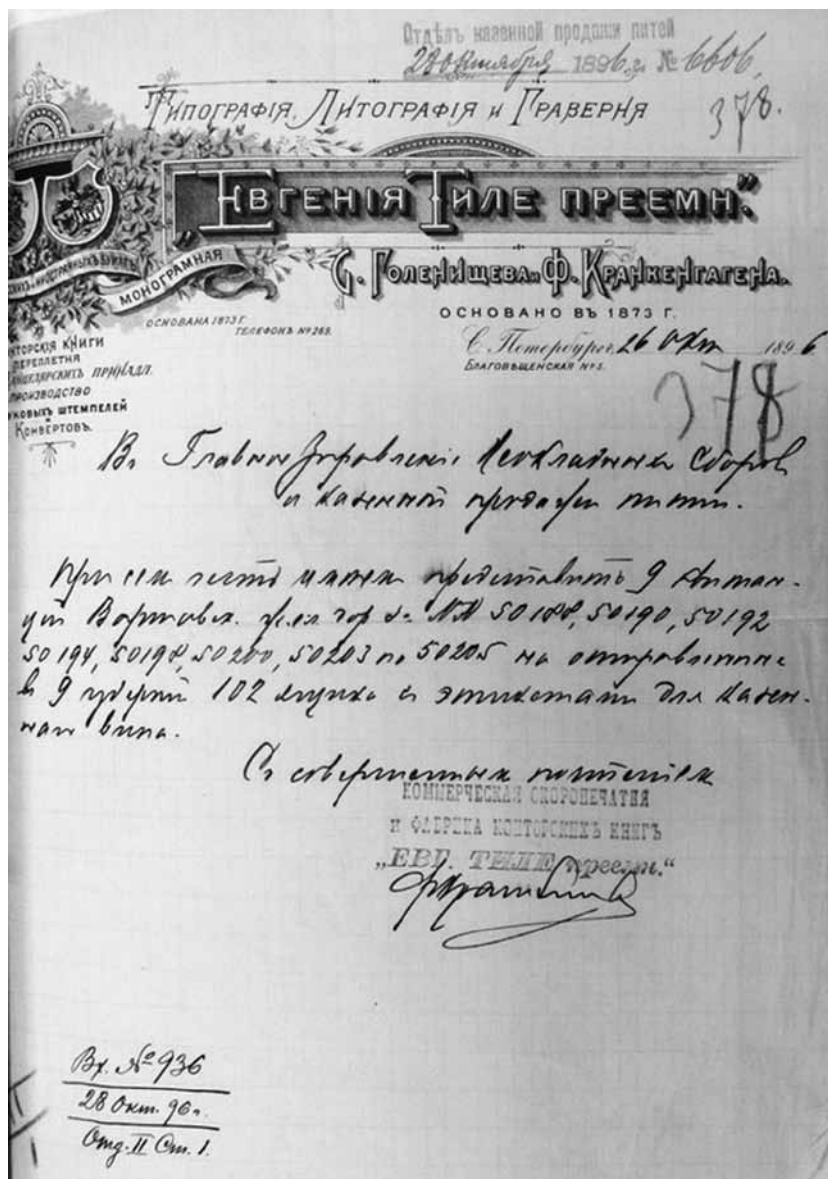 Отдѣлъ казенной продажи питей
28 Октября 1896 г. № 6606,
378.
Типографія, Литографія и Граверня
Евгенія Тиле преемн."
С. Голенищева и Ф. Кранкенгагена.
МОНОГРАМНАЯ
ОСНОВАНО ВЪ 1873 Г.
ОСНОВАНА 1873 Г.
ТЕЛЕФОНЪ № 269.
С. Петербургъ, 26 Окт 1896
БЛАГОВѢЩЕНСКАЯ № 5.
КТОРСКІЯ КНИГИ
ПЕРЕПЛЕТНЯ
НЦЕЛЯРСКИХЪ ПРИНАДЛ.
ПРОИЗВОДСТВО
КОВЫХЪ ШТЕМПЕЛЕЙ
КОНВЕРТОВЪ.
378
Въ Главное Управленіе Неокладныхъ Сборовъ
и казенной продажи питей.
При семъ честь имѣемъ представить 9 квитан-
цій Варшавск. жел. дор. за №№ 50188, 50190, 50192
50194, 50198, 50200, 50203 по 50205 на отправленные
въ 9 губерній 102 ящика съ этикетами для казен-
наго вина.
Съ совершеннымъ почтеніемъ
КОММЕРЧЕСКАЯ СКОРОПЕЧАТНЯ
И ФАБРИКА КОНТОРСКИХЪ КНИГЪ
„ЕВГ. ТИЛЕ преемн."
Вх. № 936
28 Окт. 96 г.
Отд. II Ст. 1.